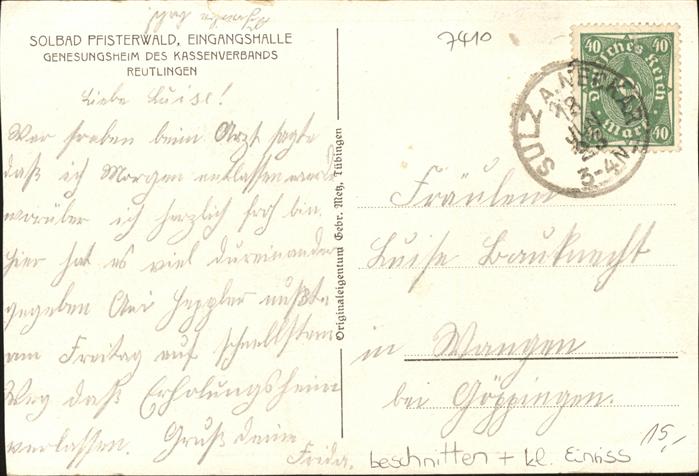 7410
SOLBAD PFISTERWALD, EINGANGSHALLE
GENESUNGSHEIM DES KASSENVERBANDS
REUTLINGEN
Liebe Luise!
War soeben beim Arzt sagte
daß ich Morgen entlassen werde
worüber ich herzlich froh bin.
Hier hat es viel durcheinander
gegeben Heppler mußte
am Freitag auf schnellstem
Weg daß Erholungsheim
verlassen. Gruß Deine
Frida.
Originaleigentum Gebr. Metz, Tübingen
40 40
Deutsches Reich
Mark
40 40
SULZ A. NECKAR
3-4N
Fräulein
Luise Bauknecht
in Wangen
bei Göppingen.
15,-
beschnitten + kl. Einriss